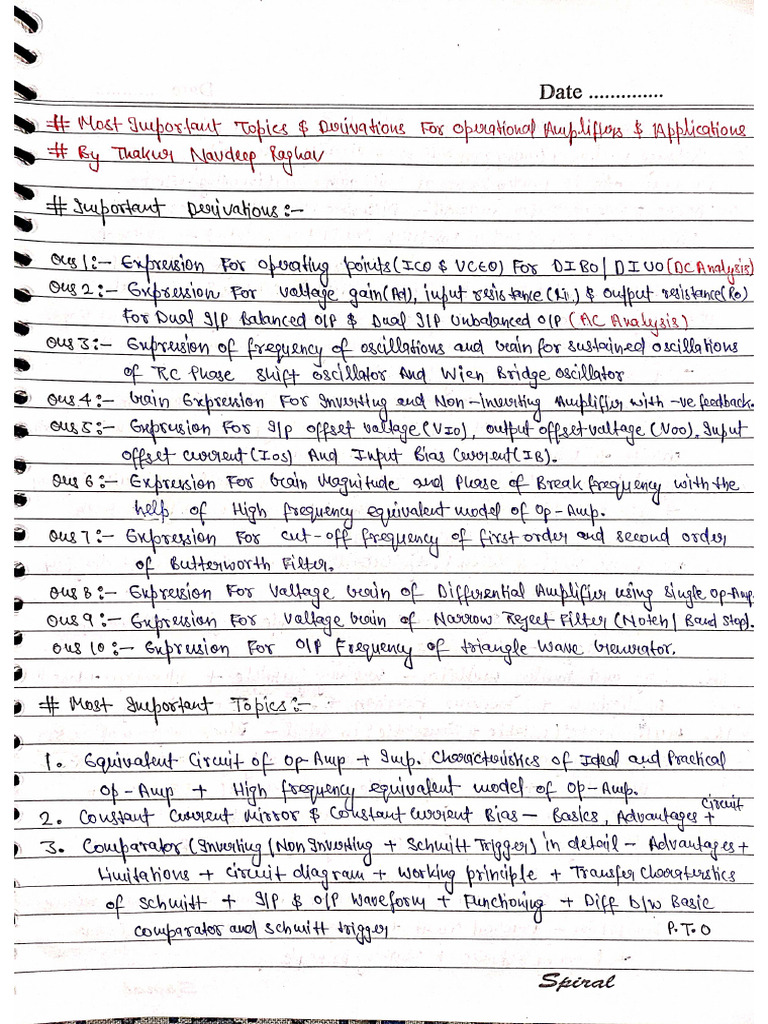 Date ..............
# Most Important Topics & Derivations For Operational Amplifiers & Applications
# By Thakur Navdeep Raghav
# Important Derivations:-
Ques 1:- Expression For operating points (ICQ & VCEQ) For DIBO / DIUO (DC Analysis)
Ques 2:- Expression For voltage gain (Ad), input resistance (Ri) & output resistance (Ro)
For Dual I/P Balanced O/P & Dual I/P Unbalanced O/P (AC Analysis)
Ques 3:- Expression of frequency of oscillations and Gain for sustained oscillations
of RC Phase shift oscillator And Wien Bridge oscillator
Ques 4:- Gain Expression For Inverting and Non-inverting Amplifier with -ve feedback.
Ques 5:- Expression For I/P offset voltage (VIO), output offset voltage (VOO), Input
offset current (IOS) And Input Bias Current (IB).
Ques 6:- Expression For Gain Magnitude and Phase of Break frequency with the
help of High frequency equivalent model of Op-Amp.
Ques 7:- Expression For cut-off frequency of first order and second order
of Butterworth Filter.
Ques 8:- Expression For Voltage Gain of Differential Amplifier using single op-Amp
Ques 9:- Expression For Voltage Gain of Narrow Reject Filter (Notch / Band Stop).
Ques 10:- Expression For O/P Frequency of triangle Wave Generator.
# Most Important Topics:-
1. Equivalent Circuit of Op-Amp + Imp. Characteristics of Ideal and Practical
Op-Amp + High frequency equivalent model of Op-Amp.
2. Constant Current Mirror & Constant Current Bias - Basics, Advantages + circuit
3. Comparator (Inverting / Non Inverting + Schmitt Trigger) in detail - Advantages +
Limitations + circuit diagram + working principle + Transfer Characteristics
of schmitt + I/P & O/P Waveform + Functioning + Diff b/w Basic
comparator and schmitt trigger
P.T.O
Spiral